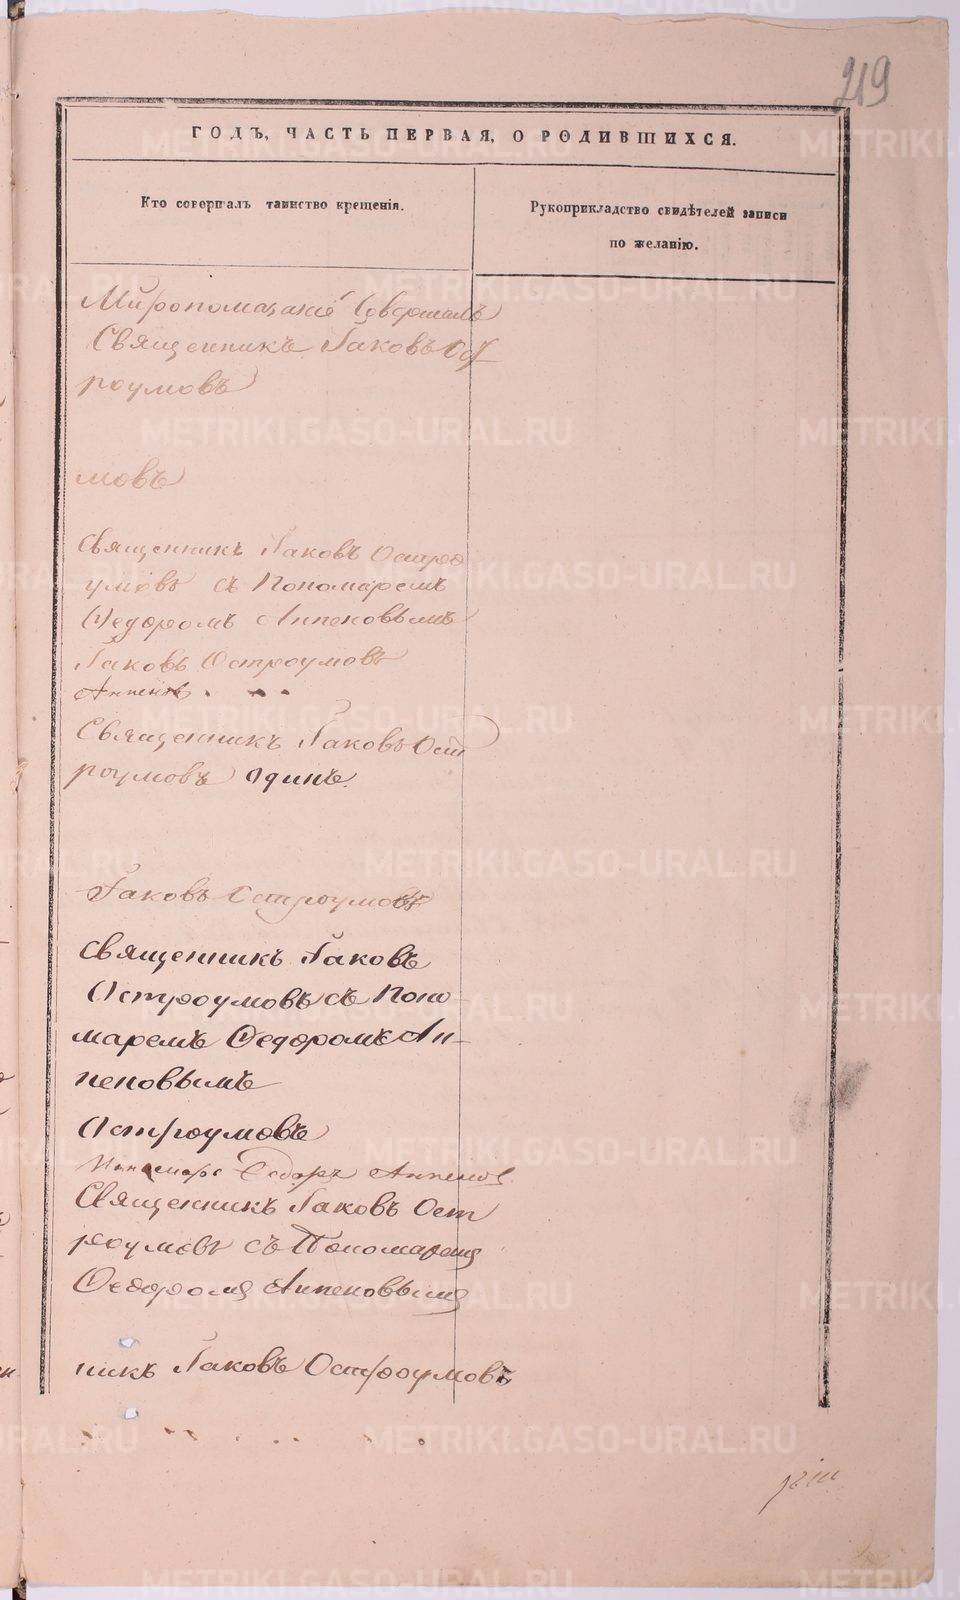 219
ГОДЪ, ЧАСТЬ ПЕРВАЯ, О РОДИВШИХСЯ.
Кто совершалъ таинство крещенія.
Рукоприкладство свидѣтелей записи
по желанію.
Миропомазаніе совершалъ
Священникъ Іаковъ Ост
роумовъ
мовъ
Священникъ Іаковъ Остро
умовъ съ Пономаремъ
Ѳедоромъ Аппеновымъ
Іаковъ Остроумовъ
Аппеновъ
Священникъ Іаковъ Ост
роумовъ одинъ.
Іаковъ Остроумовъ
Священникъ Іаковъ
Остроумовъ съ Поно-
маремъ Ѳедоромъ Ап-
пеновымъ
Остроумовъ
Пономарь Ѳедоръ Аппеновъ
Священникъ Іаковъ Ост
роумовъ съ Пономаремъ
Ѳедоромъ Аппеновымъ
никъ Іаковъ Остроумовъ
METRIKI.GASO-URAL.RU